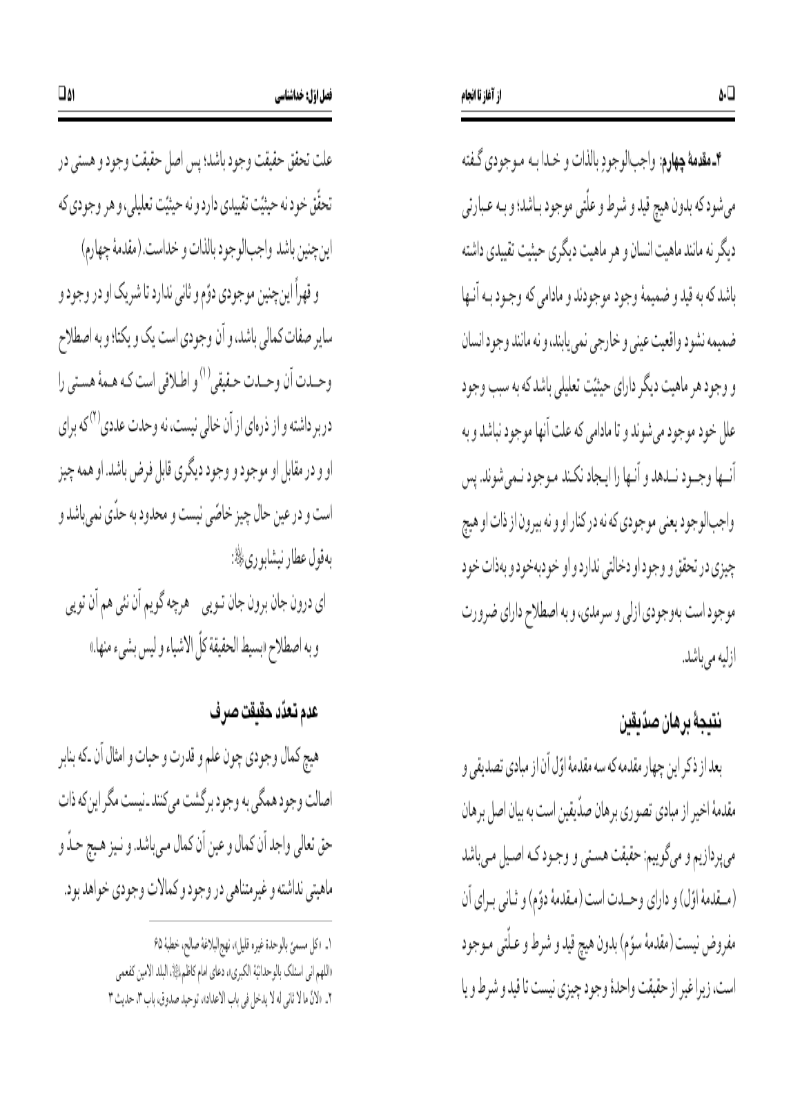 ❑ ۵۰
از آغاز تا انجام
۴ـ مقدمهٔ چهارم: واجب‌الوجودِ بالذات و خدا به موجودی گفته
می‌شود که بدون هیچ قید و شرط و علّتی موجود باشد؛ و به عبارتی
دیگر نه مانند ماهیت انسان و هر ماهیت دیگری حیثیت تقییدی داشته
باشد که به قید و ضمیمهٔ وجود موجودند و مادامی که وجود به آنها
ضمیمه نشود واقعیت عینی و خارجی نمی‌یابند، و نه مانند وجود انسان
و وجود هر ماهیت دیگر دارای حیثیّت تعلیلی باشد که به سبب وجود
علل خود موجود می‌شوند و تا مادامی که علت آنها موجود نباشد و به
آنها وجود ندهد و آنها را ایجاد نکند موجود نمی‌شوند. پس
واجب‌الوجود یعنی موجودی که نه در کنار او و نه بیرون از ذات او هیچ
چیزی در تحقق و وجود او دخالتی ندارد و او خودبه‌خود و به‌ذات خود
موجود است به‌وجودی ازلی و سرمدی، و به اصطلاح دارای ضرورت
ازلیه می‌باشد.
نتیجهٔ برهان صدّیقین
بعد از ذکر این چهار مقدمه که سه مقدمهٔ اوّل آن از مبادی تصدیقی و
مقدمهٔ اخیر از مبادی تصوری برهان صدّیقین است به بیان اصل برهان
می‌پردازیم و می‌گوییم: حقیقت هستی و وجود که اصیل می‌باشد
(مقدمهٔ اوّل) و دارای وحدت است (مقدمهٔ دوّم) و ثانی برای آن
مفروض نیست (مقدمهٔ سوّم) بدون هیچ قید و شرط و علّتی موجود
است، زیرا غیر از حقیقت واحدهٔ وجود چیزی نیست تا قید و شرط و یا
فصل اوّل: خداشناسی
۵۱ ❑
علت تحقق حقیقت وجود باشد؛ پس اصل حقیقت وجود و هستی در
تحقّق خود نه حیثیّت تقییدی دارد و نه حیثیّت تعلیلی، و هر وجودی که
این‌چنین باشد واجب‌الوجود بالذات و خداست. (مقدمهٔ چهارم)
و قهراً این‌چنین موجودی دوّم و ثانی ندارد تا شریک او در وجود و
سایر صفات کمالی باشد، و آن وجودی است یک و یکتا؛ و به اصطلاح
وحدت آن وحدت حقیقی(۱) و اطلاقی است که همهٔ هستی را
دربرداشته و از ذره‌ای از آن خالی نیست، نه وحدت عددی(۲) که برای
او و در مقابل او موجود و وجود دیگری قابل فرض باشد. او همه چیز
است و در عین حال چیز خاصّی نیست و محدود به حدّی نمی‌باشد و
به‌قول عطار نیشابوری؛:
ای درون جان برون جان تویی    هرچه گویم آن نئی هم آن تویی
و به اصطلاح «بسیط الحقیقة کلّ الاشیاء و لیس بشیء منها.»
عدم تعدّد حقیقت صرف
هیچ کمال وجودی چون علم و قدرت و حیات و امثال آن ـ که بنابر
اصالت وجود همگی به وجود برگشت می‌کنند ـ نیست مگر این‌که ذات
حق تعالی واجد آن کمال و عین آن کمال می‌باشد. و نیز هیچ حدّ و
ماهیتی نداشته و غیرمتناهی در وجود و کمالات وجودی خواهد بود.
۱ـ «کل مسمیً بالوحدة غیره قلیل»، نهج‌البلاغهٔ صالح، خطبهٔ ۶۵
«اللهم انی اسئلک بالوحدانیّة الکبری»، دعای امام کاظم، البلد الامین کفعمی
۲ـ «لانّ ما لا ثانی له لا یدخل فی باب الاعداد»، توحید صدوق، باب ۳، حدیث ۳